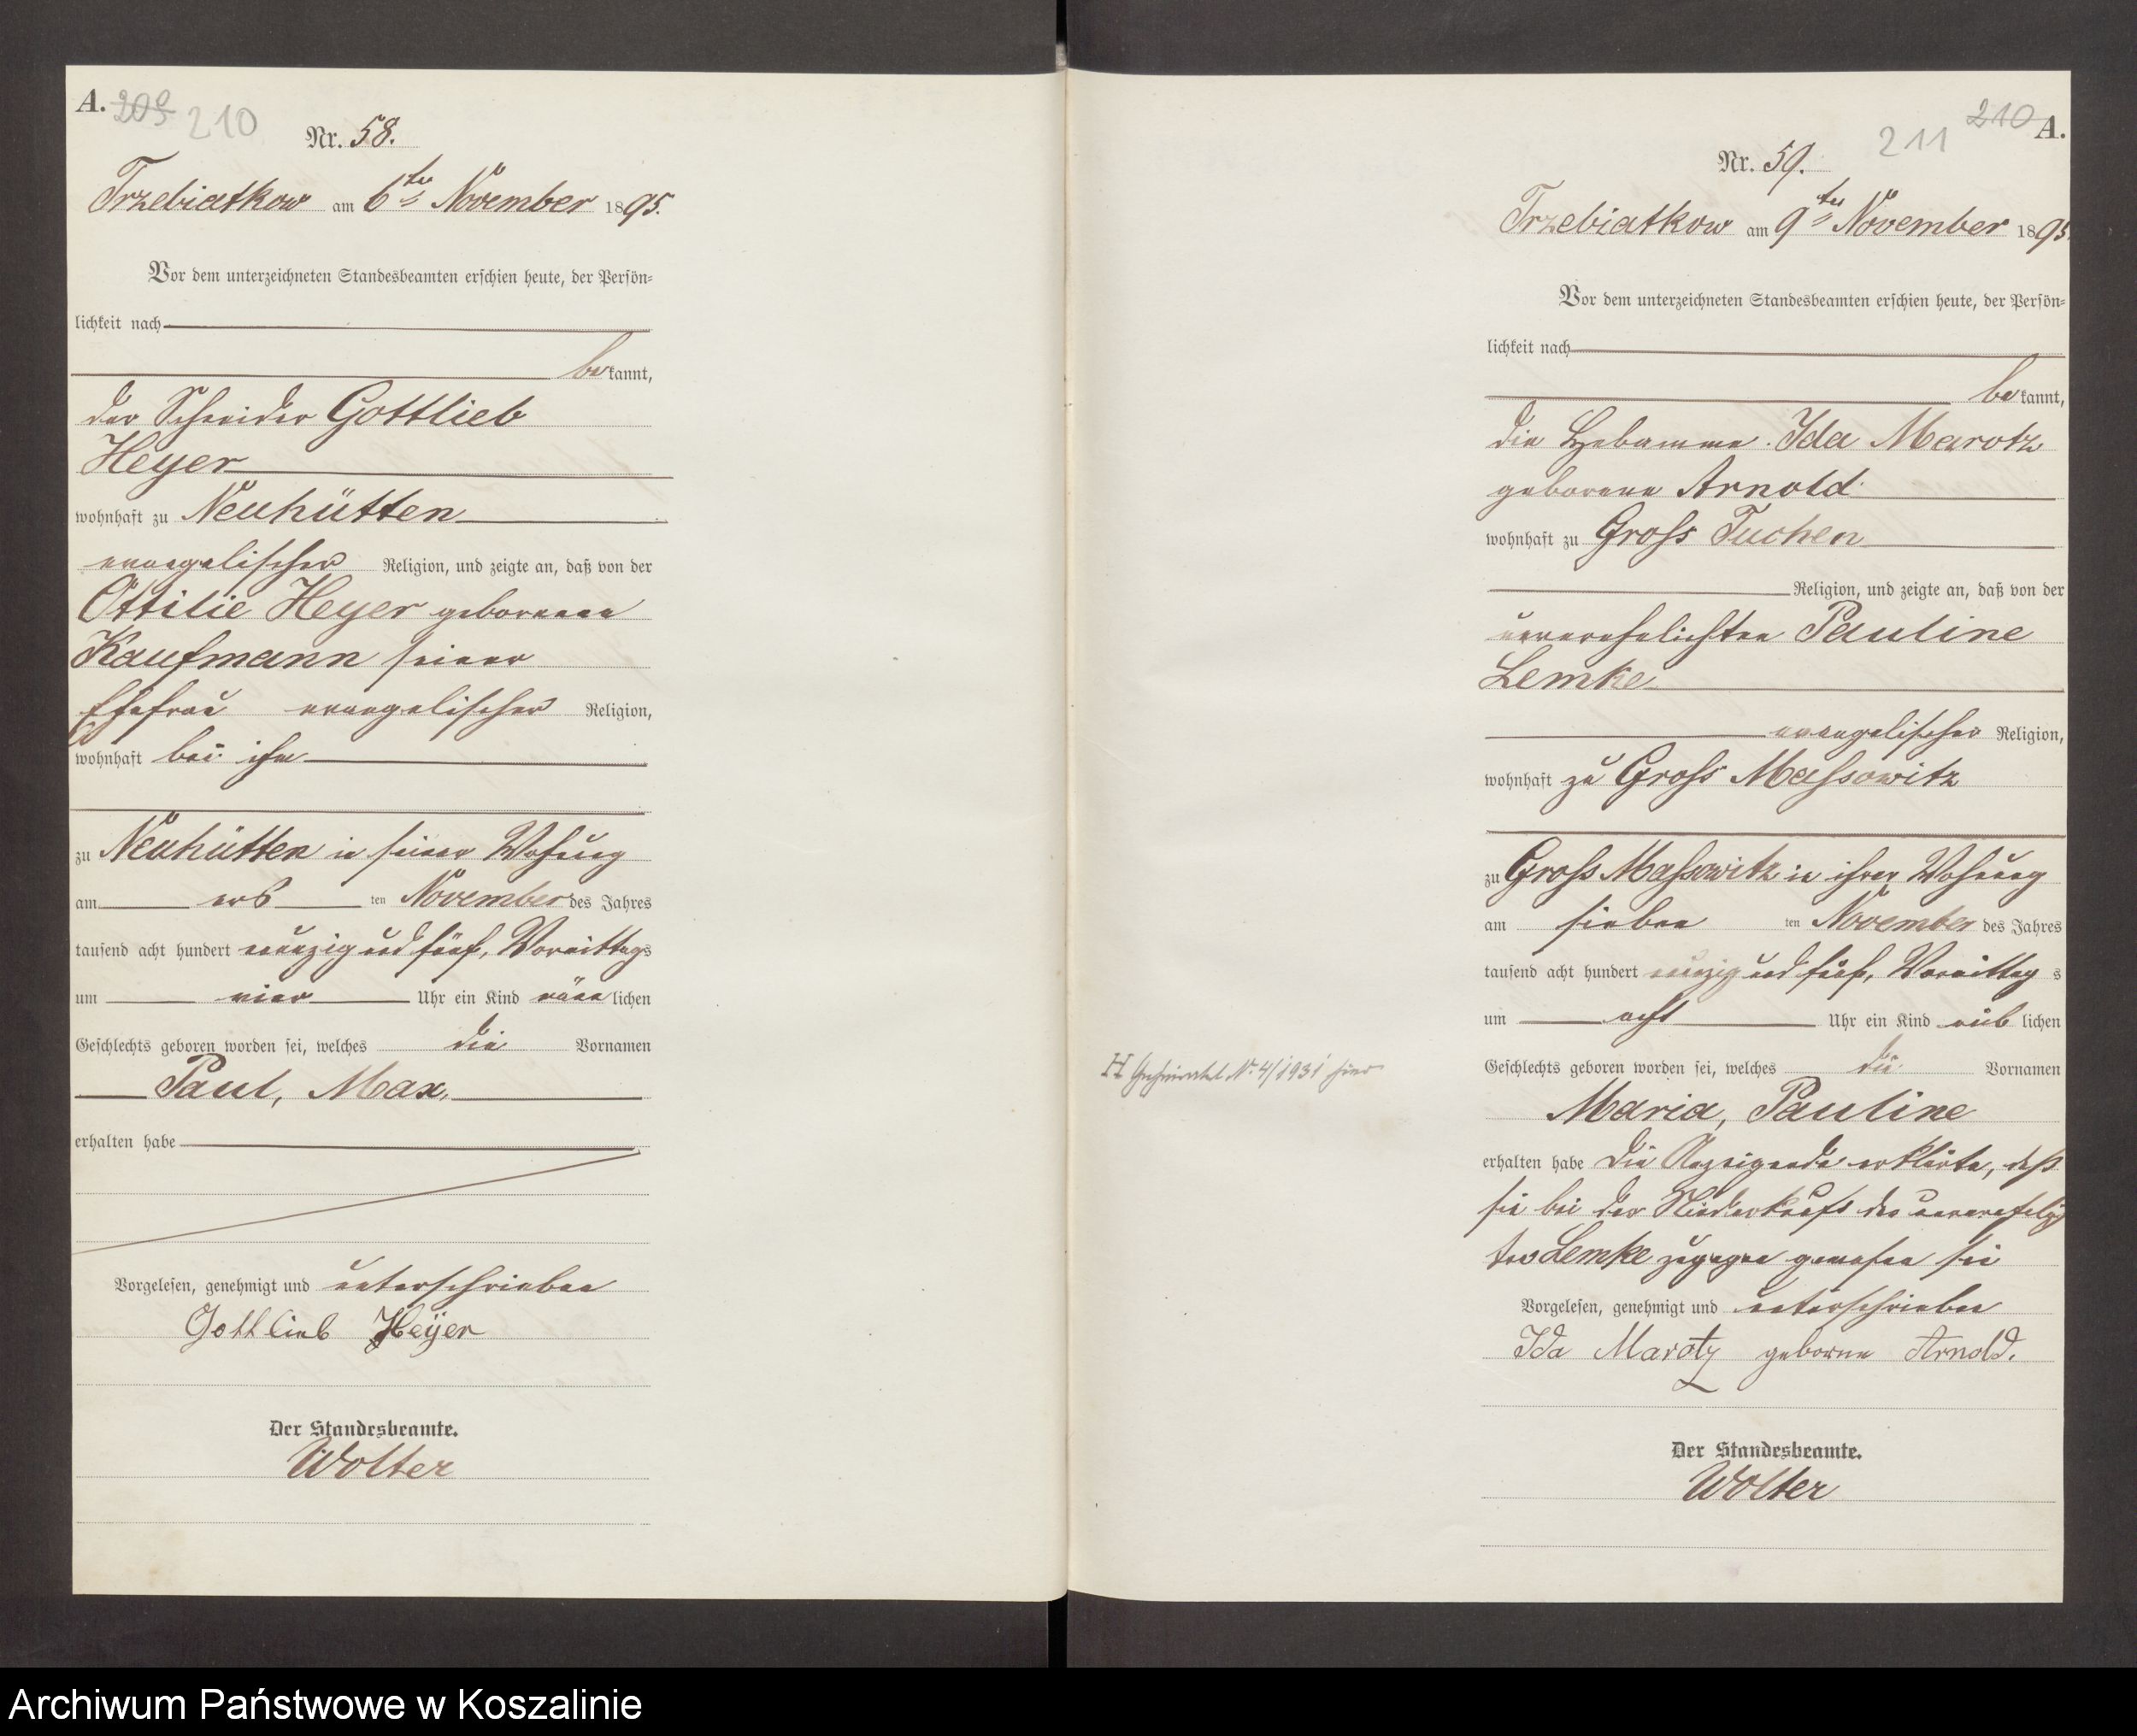 A. 209 210
Nr. 58.
Trzebiatkow am 6ten November 1895.
Vor dem unterzeichneten Standesbeamten erschien heute, der Persön-
lichkeit nach
bekannt,
der Schneider Gottlieb
Heyer
wohnhaft zu Neuhütten
evangelischer Religion, und zeigte an, daß von der
Ottilie Heyer geborenen
Kaufmann seiner
Ehefrau evangelischer Religion,
wohnhaft bei ihm
zu Neuhütten in seiner Wohnung
am ten November des Jahres
tausend acht hundert neunzig und fünf, Vormittags
um vier Uhr ein Kind männlichen
Geschlechts geboren worden sei, welches die Vornamen
Paul, Max,
erhalten habe
Vorgelesen, genehmigt und unterschrieben
Gottlieb Heyer
Der Standesbeamte.
Wolter
210 A.
211
Nr. 59.
Trzebiatkow am 9ten November 1895
Vor dem unterzeichneten Standesbeamten erschien heute, der Persön-
lichkeit nach
bekannt,
die Hebamme Ida Marotz
geborene Arnold
wohnhaft zu Gross Tuchen
Religion, und zeigte an, daß von der
unverehelichten Pauline
Lemke
evangelischer Religion,
wohnhaft zu Gross Massowitz
zu Gross Massowitz in ihrer Wohnung
am sieben ten November des Jahres
tausend acht hundert neunzig und fünf, Vormittag s
um acht Uhr ein Kind weib lichen
Geschlechts geboren worden sei, welches die Vornamen
H Geheiratet Nr. 4/1931 hier
Maria, Pauline
erhalten habe Die Anzeigende erklärte, daß
sie bei der Niederkunft der unverehelich
ten Lemke zugegen gewesen sei
Vorgelesen, genehmigt und unterschrieben
Ida Marotz geborne Arnold.
Der Standesbeamte.
Wolter
Archiwum Państwowe w Koszalinie